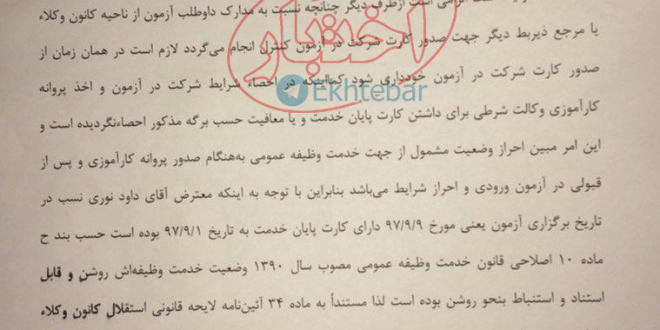 الزامی است ازطرف دیگر چنانچه نسبت به مدارک داوطلب آزمون از ناحیه کانون وکلاء
یا مرجع ذیربط دیگر جهت صدور کارت شرکت در آزمون کنترل انجام می‌گردد لازم است در همان زمان از
صدور کارت شرکت در آزمون خودداری شود کمااینکه در احصاء شرایط شرکت در آزمون و اخذ پروانه
کارآموزی وکالت شرطی برای داشتن کارت پایان خدمت و یا معافیت حسب برگه مذکور احصاءنگردیده است و
این امر مبین احراز وضعیت مشمول از جهت خدمت وظیفه عمومی به‌هنگام صدور پروانه کارآموزی و پس از
قبولی در آزمون ورودی و احراز شرایط می‌باشد بنابراین با توجه به اینکه معترض آقای داود نوری نسب در
تاریخ برگزاری آزمون یعنی مورخ ۹۷/۹/۹ دارای کارت پایان خدمت به تاریخ ۹۷/۹/۱ بوده است حسب بند ح
ماده ۱۰ اصلاحی قانون خدمت وظیفه عمومی مصوب سال ۱۳۹۰ وضعیت خدمت وظیفه‌اش روشن و قابل
استناد و استنباط بنحو روشن بوده است لذا مستنداً به ماده ۳۴ آئین‌نامه لایحه قانونی استقلال کانون وکلاء
اختبار
Ekhtebar